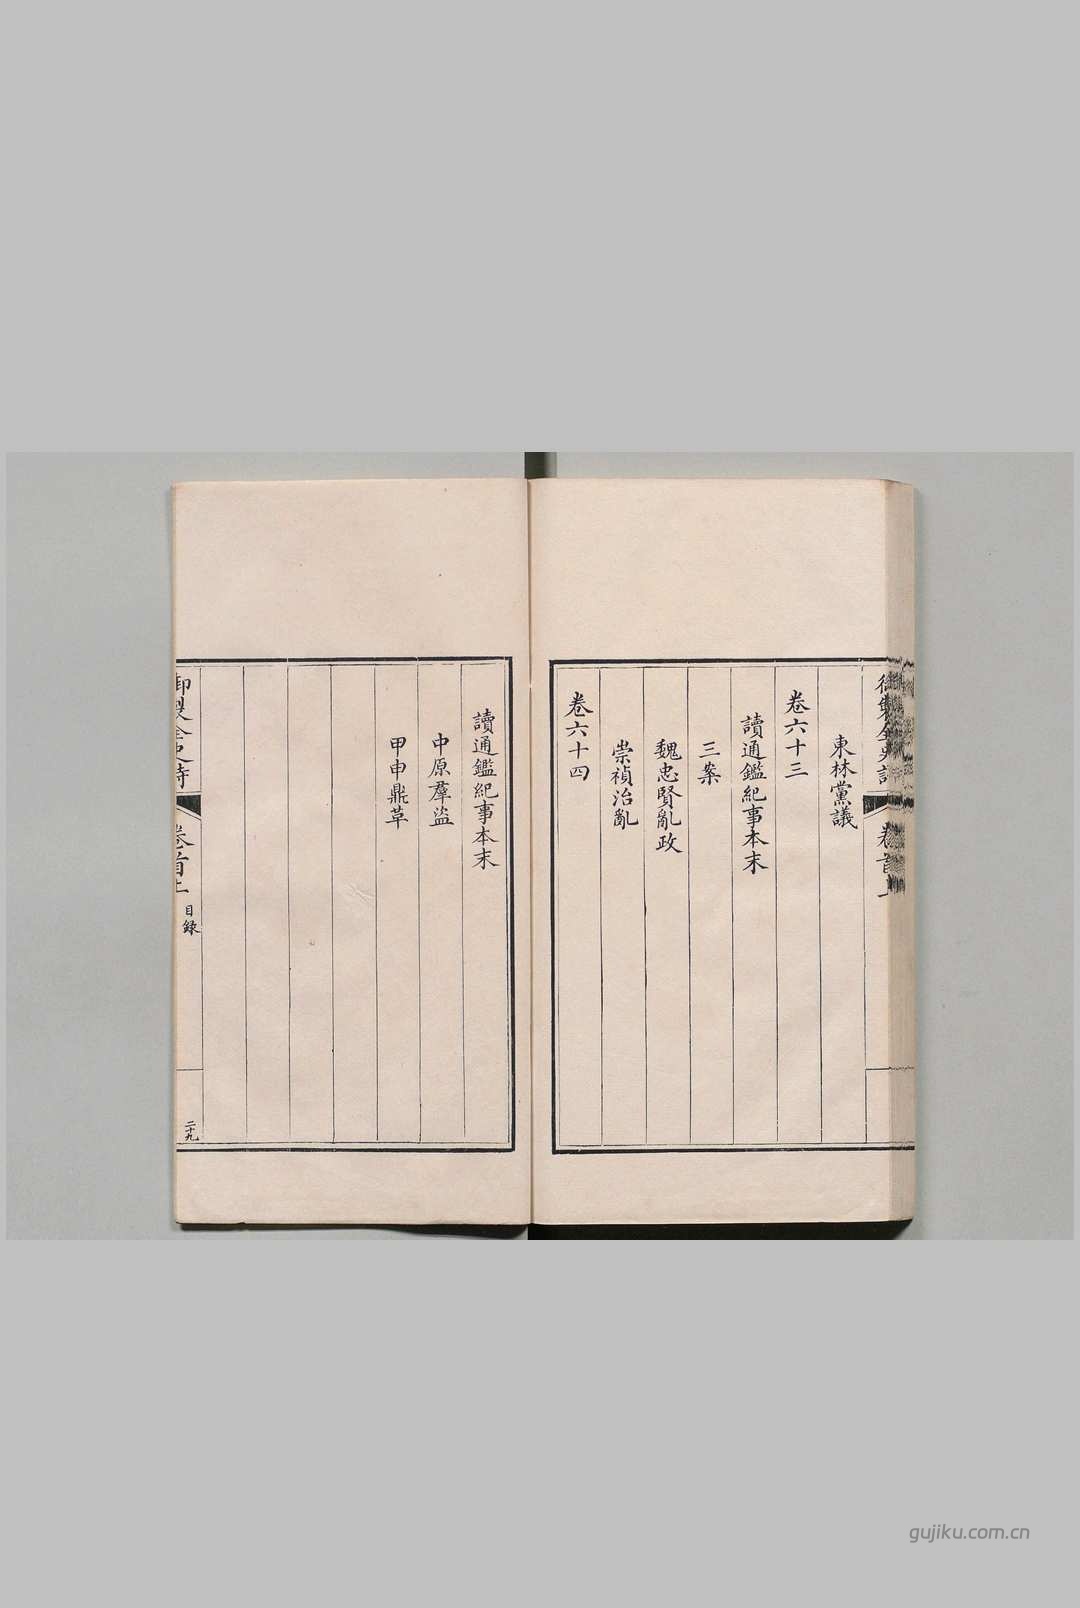 東林黨議
卷六十三
讀通鑑紀事本末
三案
魏忠賢亂政
崇禎治亂
卷六十四
讀通鑑紀事本末
中原羣盜
甲申鼎革
御製全史詩
卷首上
目録
二十九
gujiku.com.cn